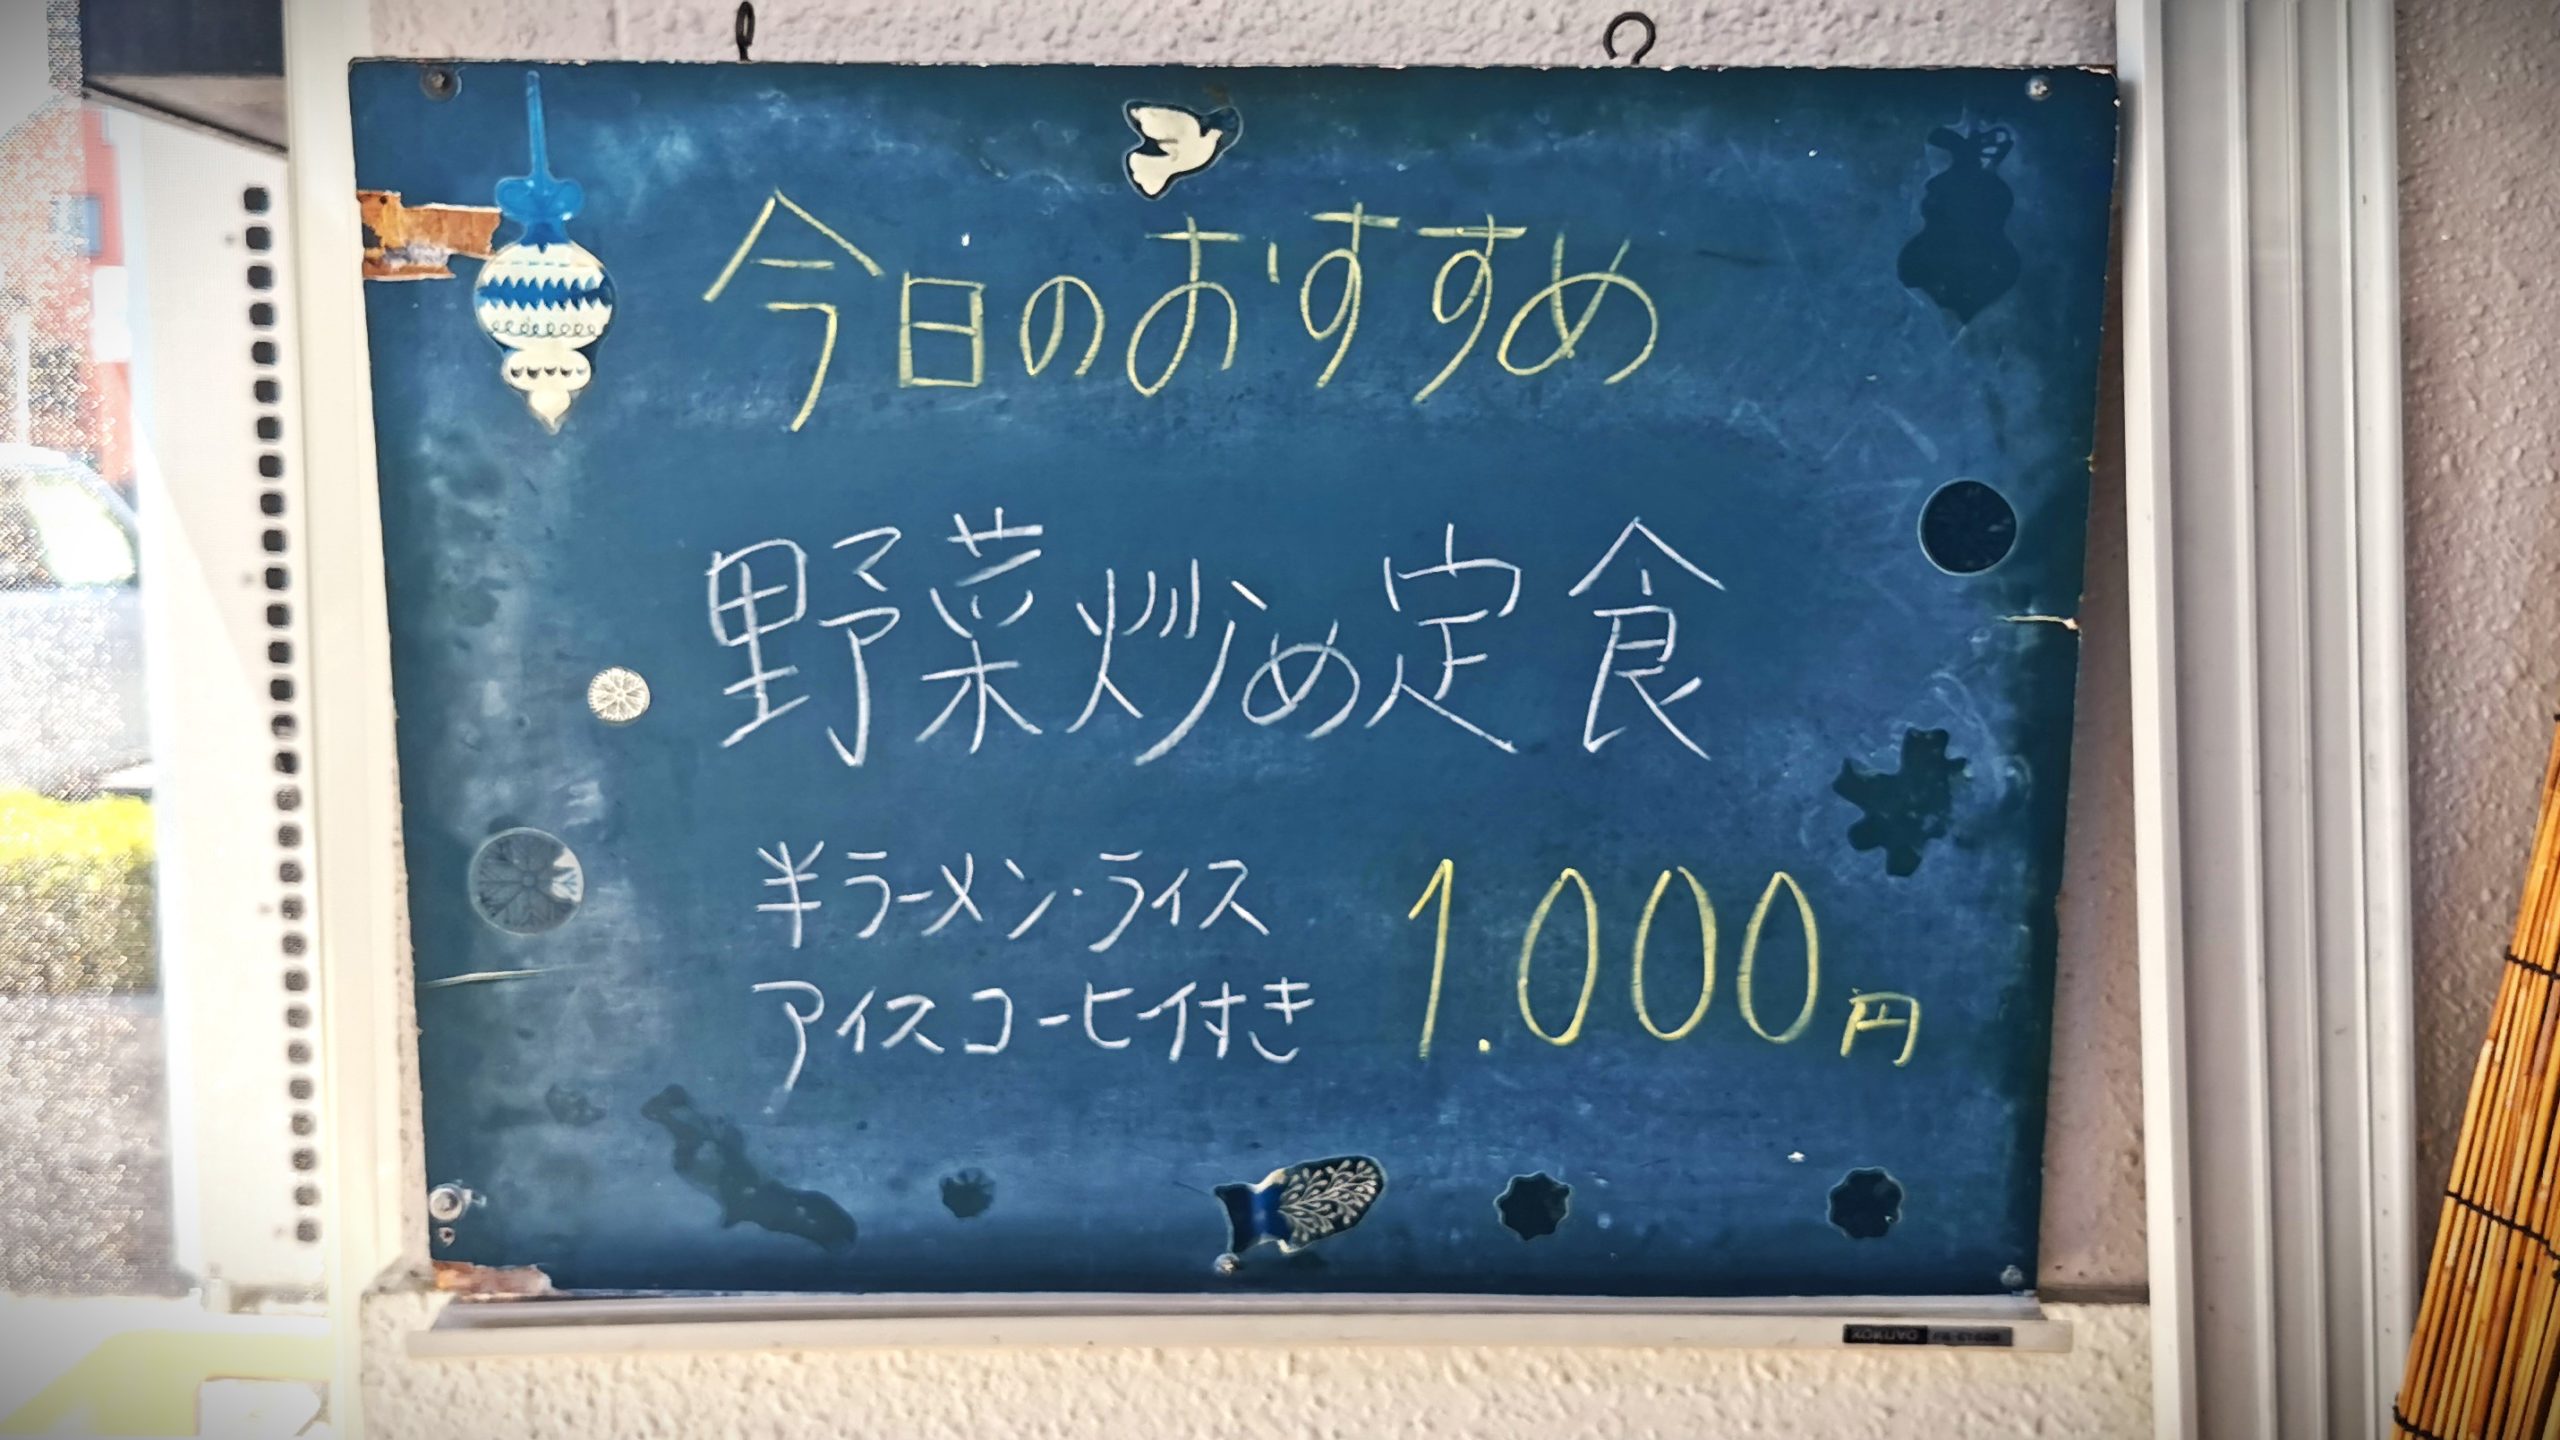 今日のおすすめ
野菜炒め定食
半ラーメン・ライス
アイスコーヒー付き
1.000円